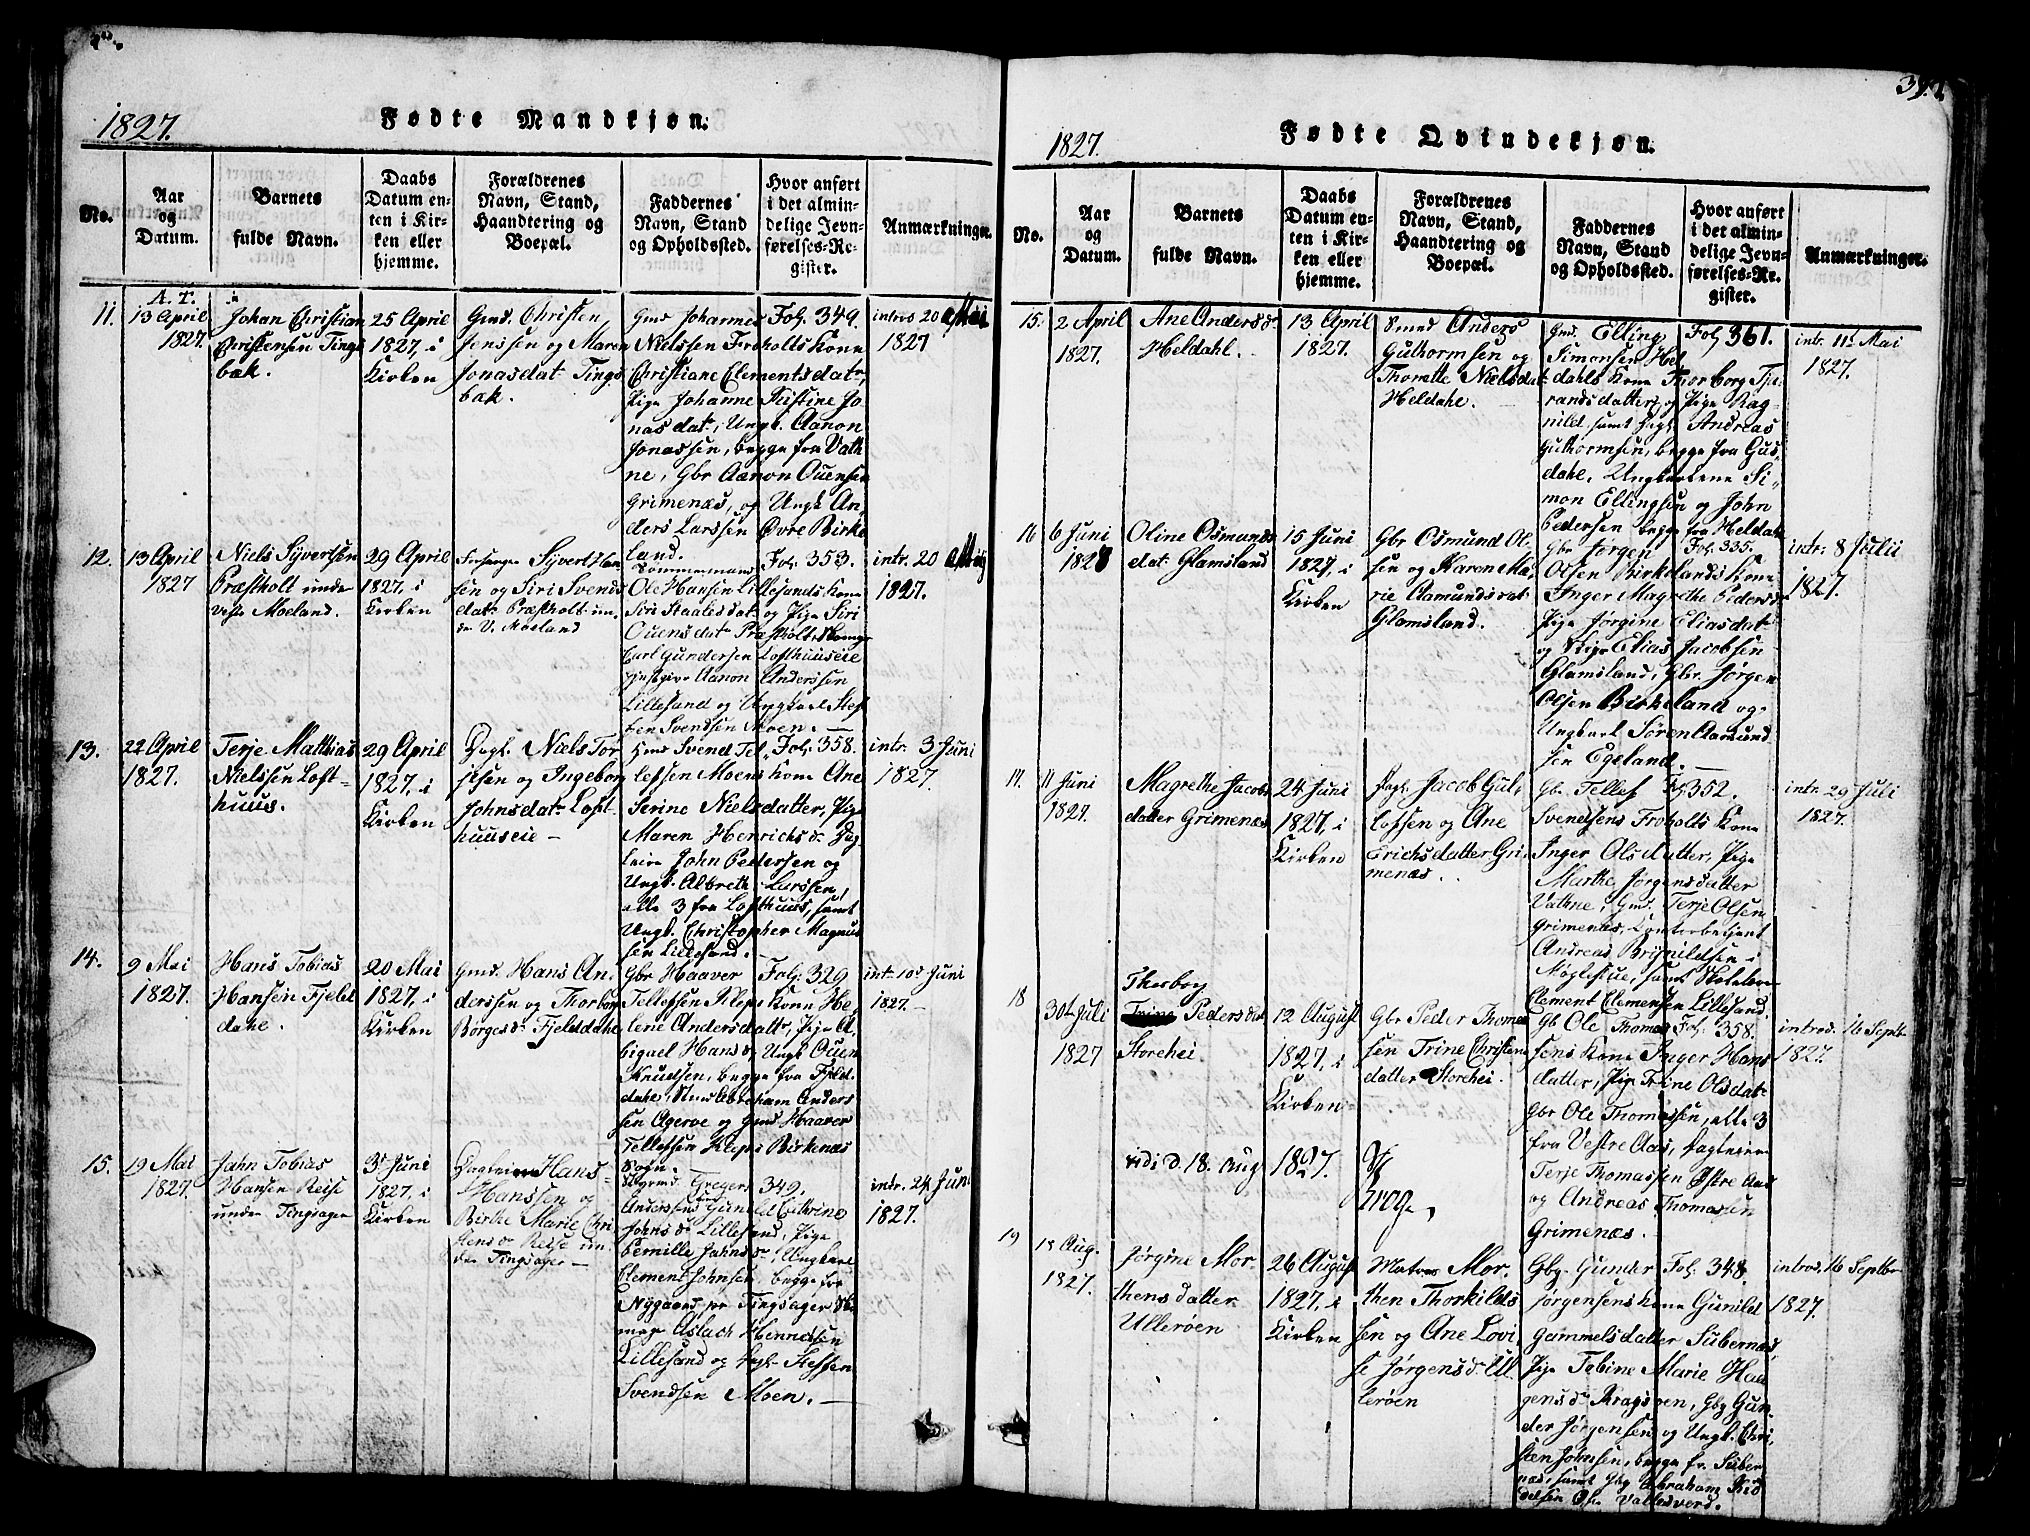 1827.
Fødte Mandkjøn.
No.
Aar
og
Datum.
Barnets
fulde Navn.
Daabs
Datum en-
ten i Kir-
ken eller
hjemme.
Forældrenes
Navn, Stand,
Haandtering og
Boepæl.
Faddernes
Navn, Stand
og Opholdssted.
Hvor anført
i det almin-
delige Jevn-
førelses-Re-
gister.
Anmærkninger.
11.
13 April
1827.
Johan Christian
Christensen Tings
bæk.
25 April
1827, i
Kirken
Gmd. Christen
Jenssen og Maren
Jonasdat Tings
bæk.
Gmd Johannes
Nielssen Froholts Kone
Christiane Clementsdatr,
Pige Johanne Kistine Jo
nasdat, Ungk. Aanon
Jonassen, begge fra Vath
ne, Gbr Aanon Ouensen
Grimenæs, og Ungk An
ders Larssen Øvre Birke
land.
Fol. 349.
intros 20 Mai
1827
12.
13 April
1827
Niels Syvertsen
Præstholt unde
vestre Moeland.
29 April
1827, i
Kirken
Syvert Han
sen og Siri Svends
dat Præstholt un
de V. Moeland
Ole Hansen Lillesands Kone
Siri Staalesdat og Pige Siri
Ouensdat Præstholt
Carl Gundersen Lofthuuseie
Aanon Anderssen
Lillesand og Ungkarl Stef
fen Svendsen Moen.
Fol. 353.
intr. 20 Mai
1827.
13.
22 April
1827.
Terje Mathias
Nielssen Loft-
huus.
29 April
1827, i
Kirken
Dagl. Niels Tor
jesen og Ingeborg
Johnsdat Loft
huuseie -
Gmd Svend Tel
lefsen Moens Kone Ane
Serine Nielsdatter, Pige
Maren Henrichsdr
John Pedersen og
Ungk. Albreth Larssen,
alle 3 fra Lofthuus, samt
Ungk. Christopher Magnus
sen Lillesand.
Fol. 358.
intr. 3 Juni
1827.
14.
9 Mai
1827.
Hans Tobias
Hansen Fjeld
dahl.
20 Mai
1827, i
Kirken
Gmd. Hans An
derssen og Thorborg
Borgesdr Fjeldahl
Gbr Haaver
Tellefsen Kleps Kone He
lene Andersdatr, Pige A
bigael Hansdr Ungk Ouen
Knudsen, begge fra Fjeld
dahl, Abraham Anders
sen Ageroe og Gmd Haaver
Tellefsen Kleps Birkenæs
Sogn.
Fol. 329,
intr. 10 Juni
1827.
15.
19 Mai
1827.
Jahn Tobias
Hansen Reise
under Tingsager
3 Juni
1827, i
Kirken
Hans
Hanssen og
Birthe Marie Chri
stensdr Reise un
der Tingsager -
Greger
Anderssens Gunild Cathrine
Johnsdr Lillesand, Pige
Pernille Jahnsdr, Ungkarl
Clement Johnsen, begge fra
Nygaard pr Tingsager
Aslach Henrichsen
Lillesand og Steffen
Svendsen Moen.
349,
intr. 24 Juni
1827.
1827.
Fødte Qvindekjøn.
No.
Aar
og
Datum.
Barnets
fulde Navn.
Daabs
Datum en-
ten i Kir-
ken eller
hjemme.
Forældrenes
Navn, Stand,
Haandtering og
Boepæl.
Faddernes
Navn, Stand
og Opholdssted.
Hvor anført
i det almin-
delige Jevn-
førelses-Re-
gister.
Anmærkninger.
15.
2 April
1827.
Ane Andersdr
Heldahl.
13 April
1827.
Anders
Guthormsen og
Thoratte Nielsdat
Heldahl.
Gmd. Elling
Simonsen Hel
dahls Kone Thorborg Tje
randsdatter, og Pige Rag
nild, samt Andreas
Guthormsen, begge fra Gus
dahl, Ungkarlene Si
mon Ellingsen og John
Pedersen begge fra Heldahl
Fol 361.
intr. 11 Mai
1827.
16
6 Juni
1827
Oline Osmunds
dat. Glamsland
15 Juni
1827, i
Kirken
Gbr Osmund Ol
sen og Karen Ma
rie Aamundsdat
Glamsland.
Gbr Jørgen
Olsen Birkelands Kone
Inger Magrethe Pedersdr
Pige Jørgine Eliasdat
og Elias Jacobsen
Glamsland, Gbr. Jørgen
Olsen Birkeland og
Ungkarl Søren Aamund
sen Egeland.
Fol. 335.
intr. 8 Julii
1827.
17.
11 Juni
1827.
Magrethe Jacobs
datter Grimenæs
24 Juni
1827, i
Kirken
Jacob Gul
lofsen og Ane
Erichsdatter Gri
menæs.
Gb. Tellef
Svendsens Froholts Kone
Inger Olsdatter, Pige
Marthe Jørgensdatter
Vathne, Gmd. Terje Olsen
Grimenæs, Contorbetjent
Andreas Brynildsen
Møglestue, samt
Clement Clemensen Lillesand.
Fol 352.
intr. 29 Juli
1827.
18
30 Juli
1827
Thorborg
Trine Pedersdat
Storehei.
12 August
1827, i
Kirken
Gbr Peder Thomas
sen Trine Christens
datter Storehei.
Gb Ole Thomas
sens Kone Inger Hans
datter, Pige Trine Olsdat
Gbr Ole Thomassen, alle 3
fra Vestre Aas,
Terje Thomassen Østre Aas
og Andreas Thomassen
Grimenæs.
Fol. 358.
introd. 16 Septbr
1827.
vidi d. 18. Aug 1827.
19
18 Aug.
1827.
Jørgine Mor
thensdatter
Ullerøen
26 August
1827, i
Kirken
Matros Mor
then Thorkilds
sen og Ane Lovi
se Jørgensdr Ul
lerøen
Gbr. Gunder
Jørgensens Kone Gunild
Gammelsdatter Sæbernæs,
Pige Tobine Marie Haa
gensdr Kragsoen, Gbr Gun
der Jørgensen og Ungk. Chri
sten Johnsen, begge fr. Sæber
næs, samt Gbr Abraham Kid
delsen Vallesverd.
Fol. 348.
introd. 16 Septbr
1827.